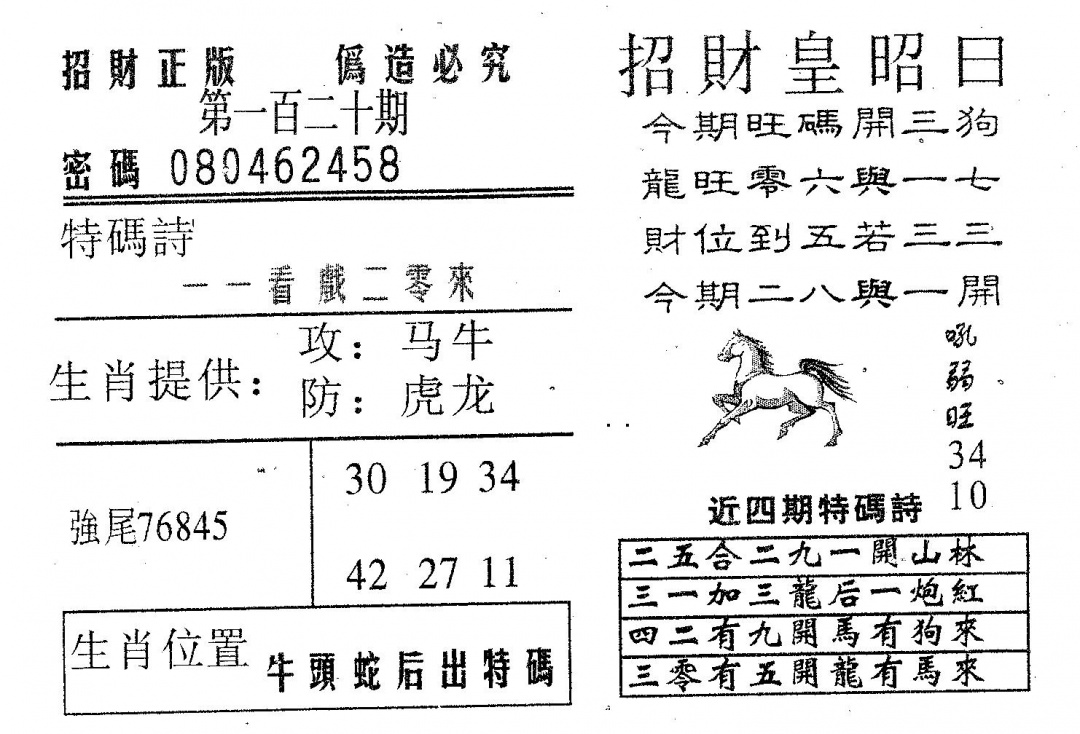 招財正版 偽造必究
第一百二十期
密碼 080462458
特碼詩
一一看戲二零來
生肖提供：
攻：马牛
防：虎龙
強尾76845
30 19 34
42 27 11
生肖位置
牛頭蛇后出特碼
招財皇昭曰
今期旺碼開三狗
龍旺零六與一七
財位到五若三三
今期二八與一開
吼
弱
旺
34
10
近四期特碼詩
二五合二九一開山林
三一加三龍后一炮紅
四二有九開馬有狗來
三零有五開龍有馬來